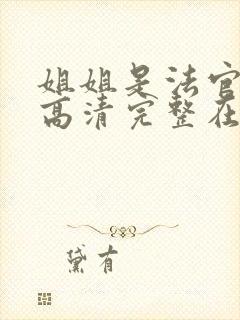 姐姐是法官
高清完整在
黛有